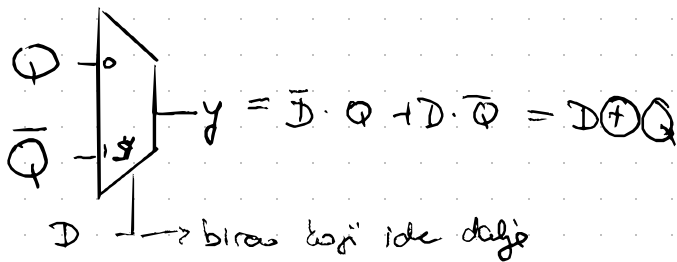 Q 0
y = D̅ · Q + D · Q̅ = D ⊕ Q
Q̅ 1
D → birao koji ide dalje